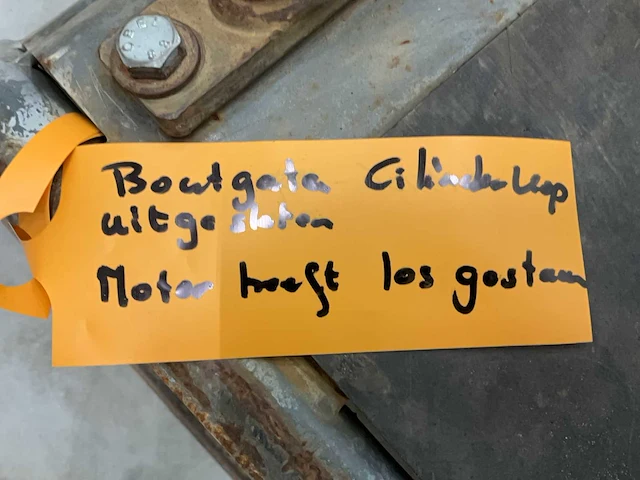 Boutgate Cilinderkop
uitgesloten
Motor heeft los gestaan